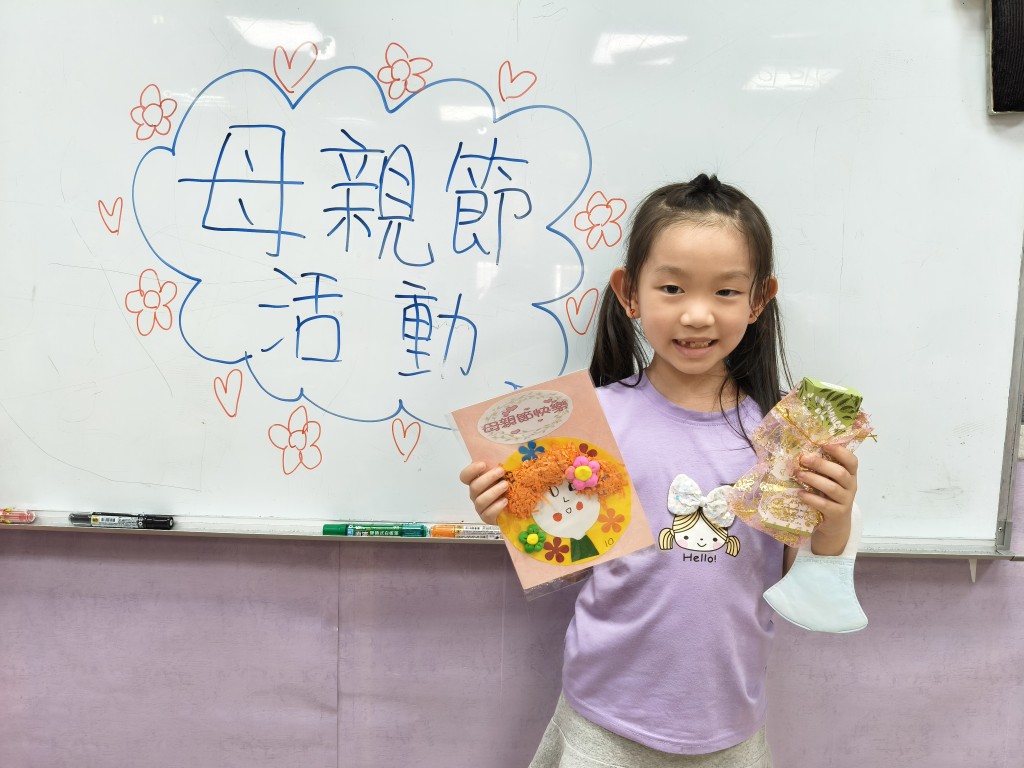 母親節
活動
母親節快樂
10
Hello!